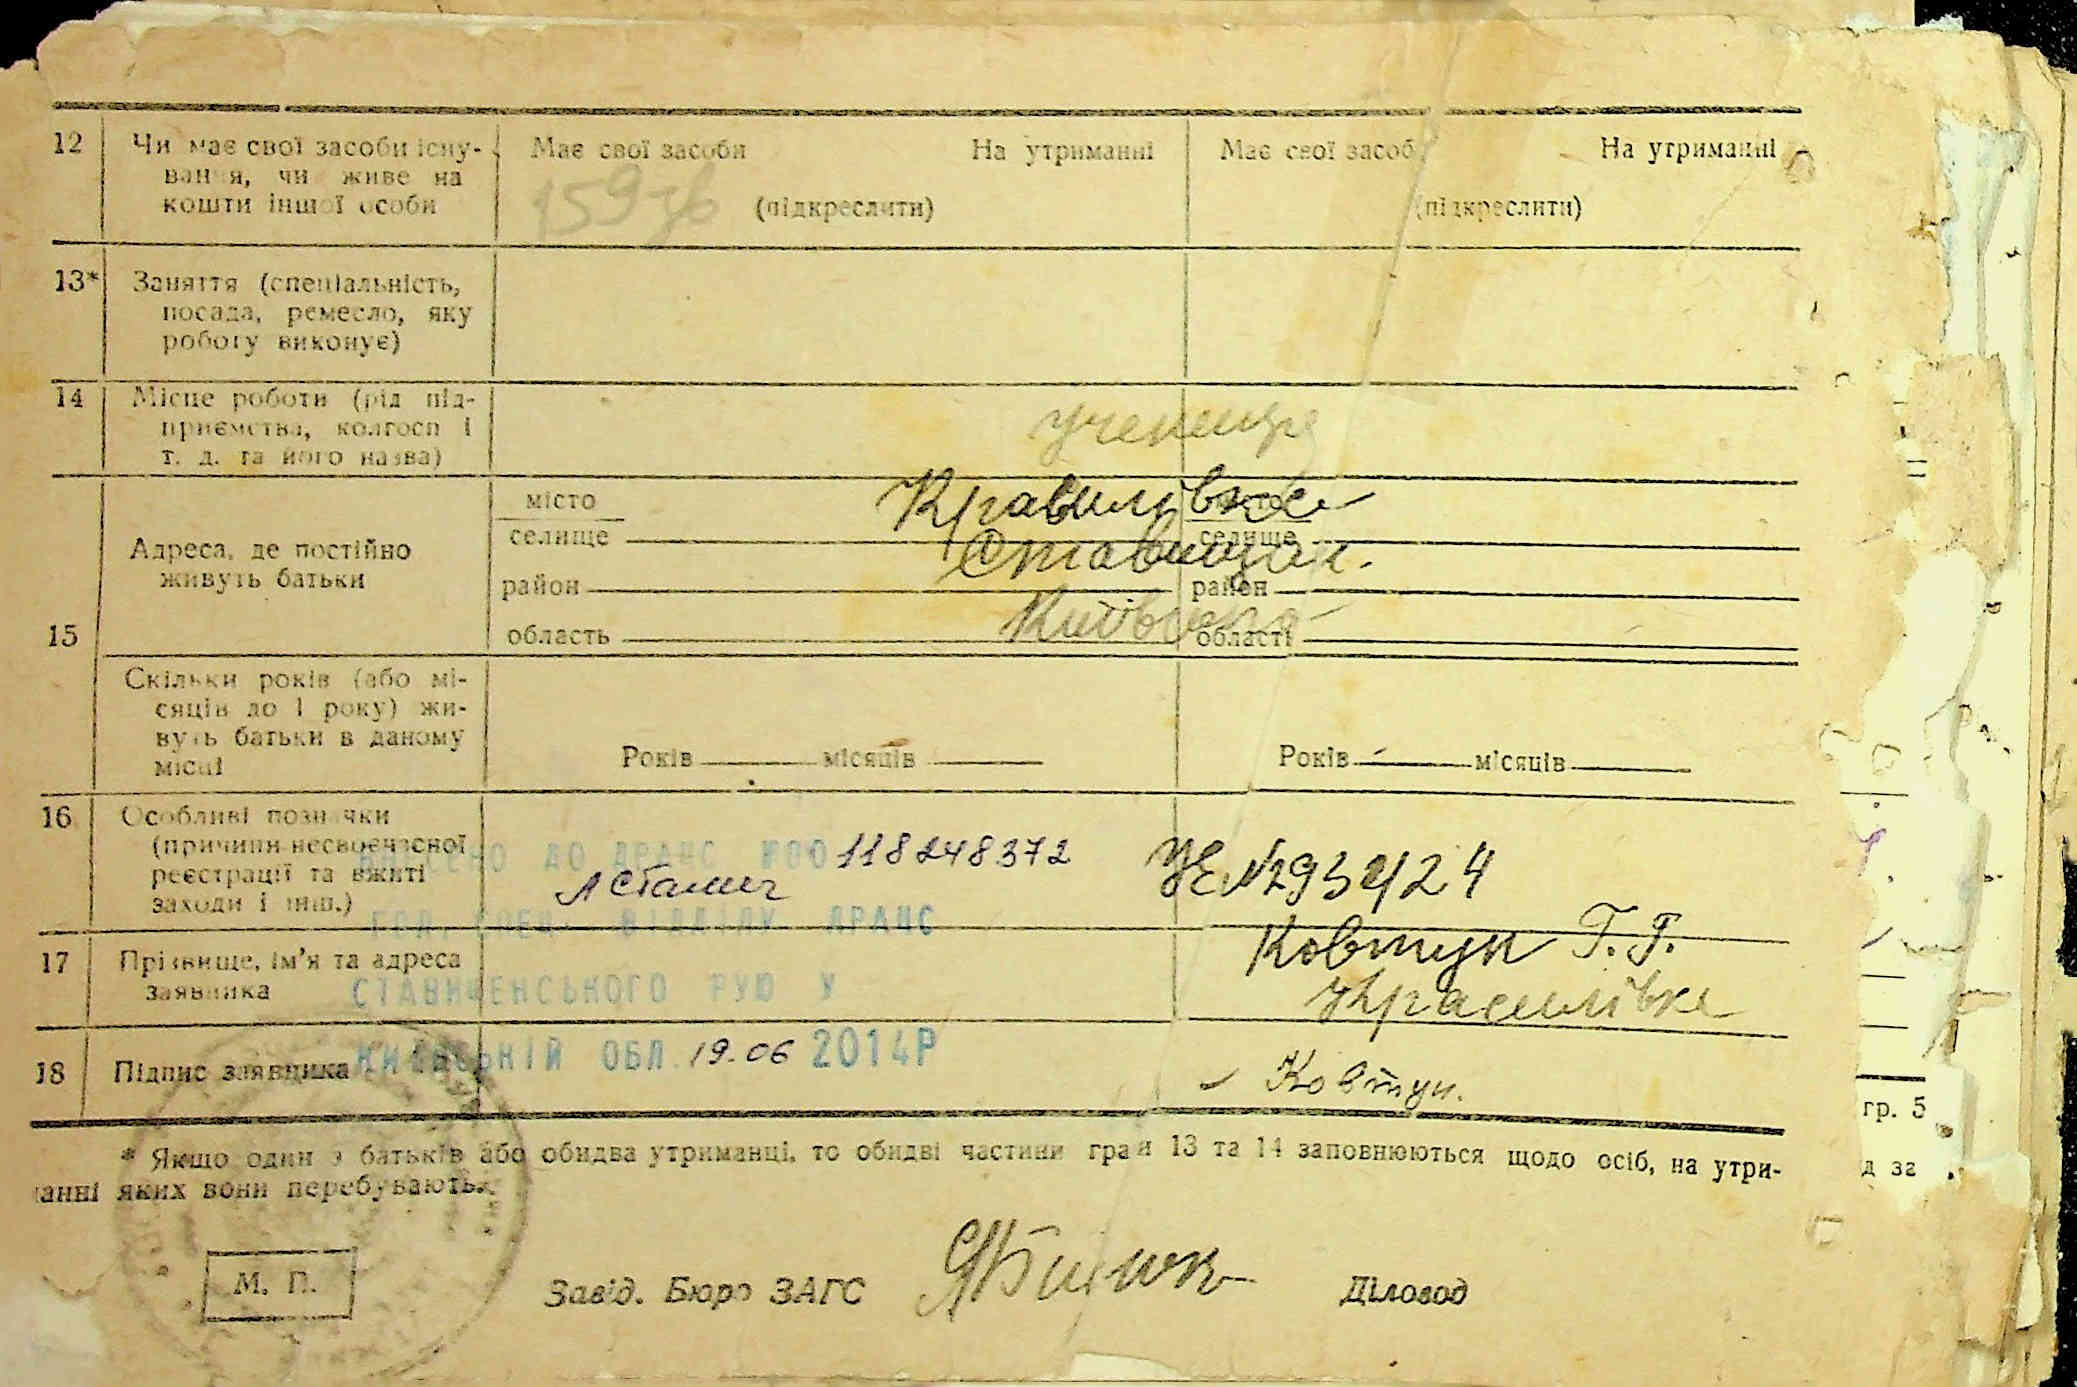 12 Чи має свої засоби існу- Має свої засоби На утриманні Має свої засоб На утриманні
вання, чи живе на
кошти іншої особи 159 (підкреслити) (підкреслити)
13* Заняття (спеціальність,
посада, ремесло, яку
роботу виконує)
14 Місце роботи (рід під-
приємства, колгосп і
т. д. та його назва)
місто Красилівка місто
селище Ставищан. селище
Адреса, де постійно
живуть батьки
район район
15 область Київська області
Скільки років (або мі-
сяців до 1 року) жи-
вуть батьки в даному
місці
Років місяців Років місяців
16 Особливі позначки
(причини несвоєчасної
реєстрації та вжиті
заходи і інш.)
ВНЕСЕНО ДО ДРАЦС 00118248372
УЕ №
ГОЛ. СПЕЦ. ВІДДІЛУ ДРАЦС
17 Прізвище, ім’я та адреса
заявника
Ковтун Г. Г.
Красилівка
СТАВИЩЕНСЬКОГО РУЮ У
КИЇВСЬКІЙ ОБЛ. 19.06 2014Р
18 Підпис заявника Ковтун.
* Якщо один з батьків або обидва утриманці, то обидві частини граф 13 та 14 заповнюються щодо осіб, на утри-
анні яких вони перебувають.
М. П. Завід. Бюро ЗАГС Діловод
гр. 5
д за